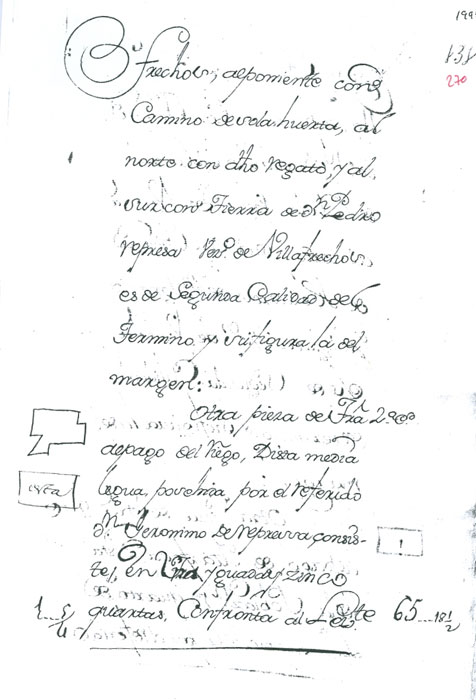 199
131
270
frechos, al poniente con el
Camino de vola huerta, al
norte con dho regato, y al
sur con Tierra de Dn Pedro
represa Vezº de Villafrechos,
es de Segunda Calidad, de
Termino y su figura la del
margen:
Otra pieza de Trā 2.
al pago del Riego, Dista media
legua, posehida por el referido
Dn Jeronimo de represa, consis-
te, en Una Yguada y zinco
quartas, Confronta al Lte 65
18 1/2